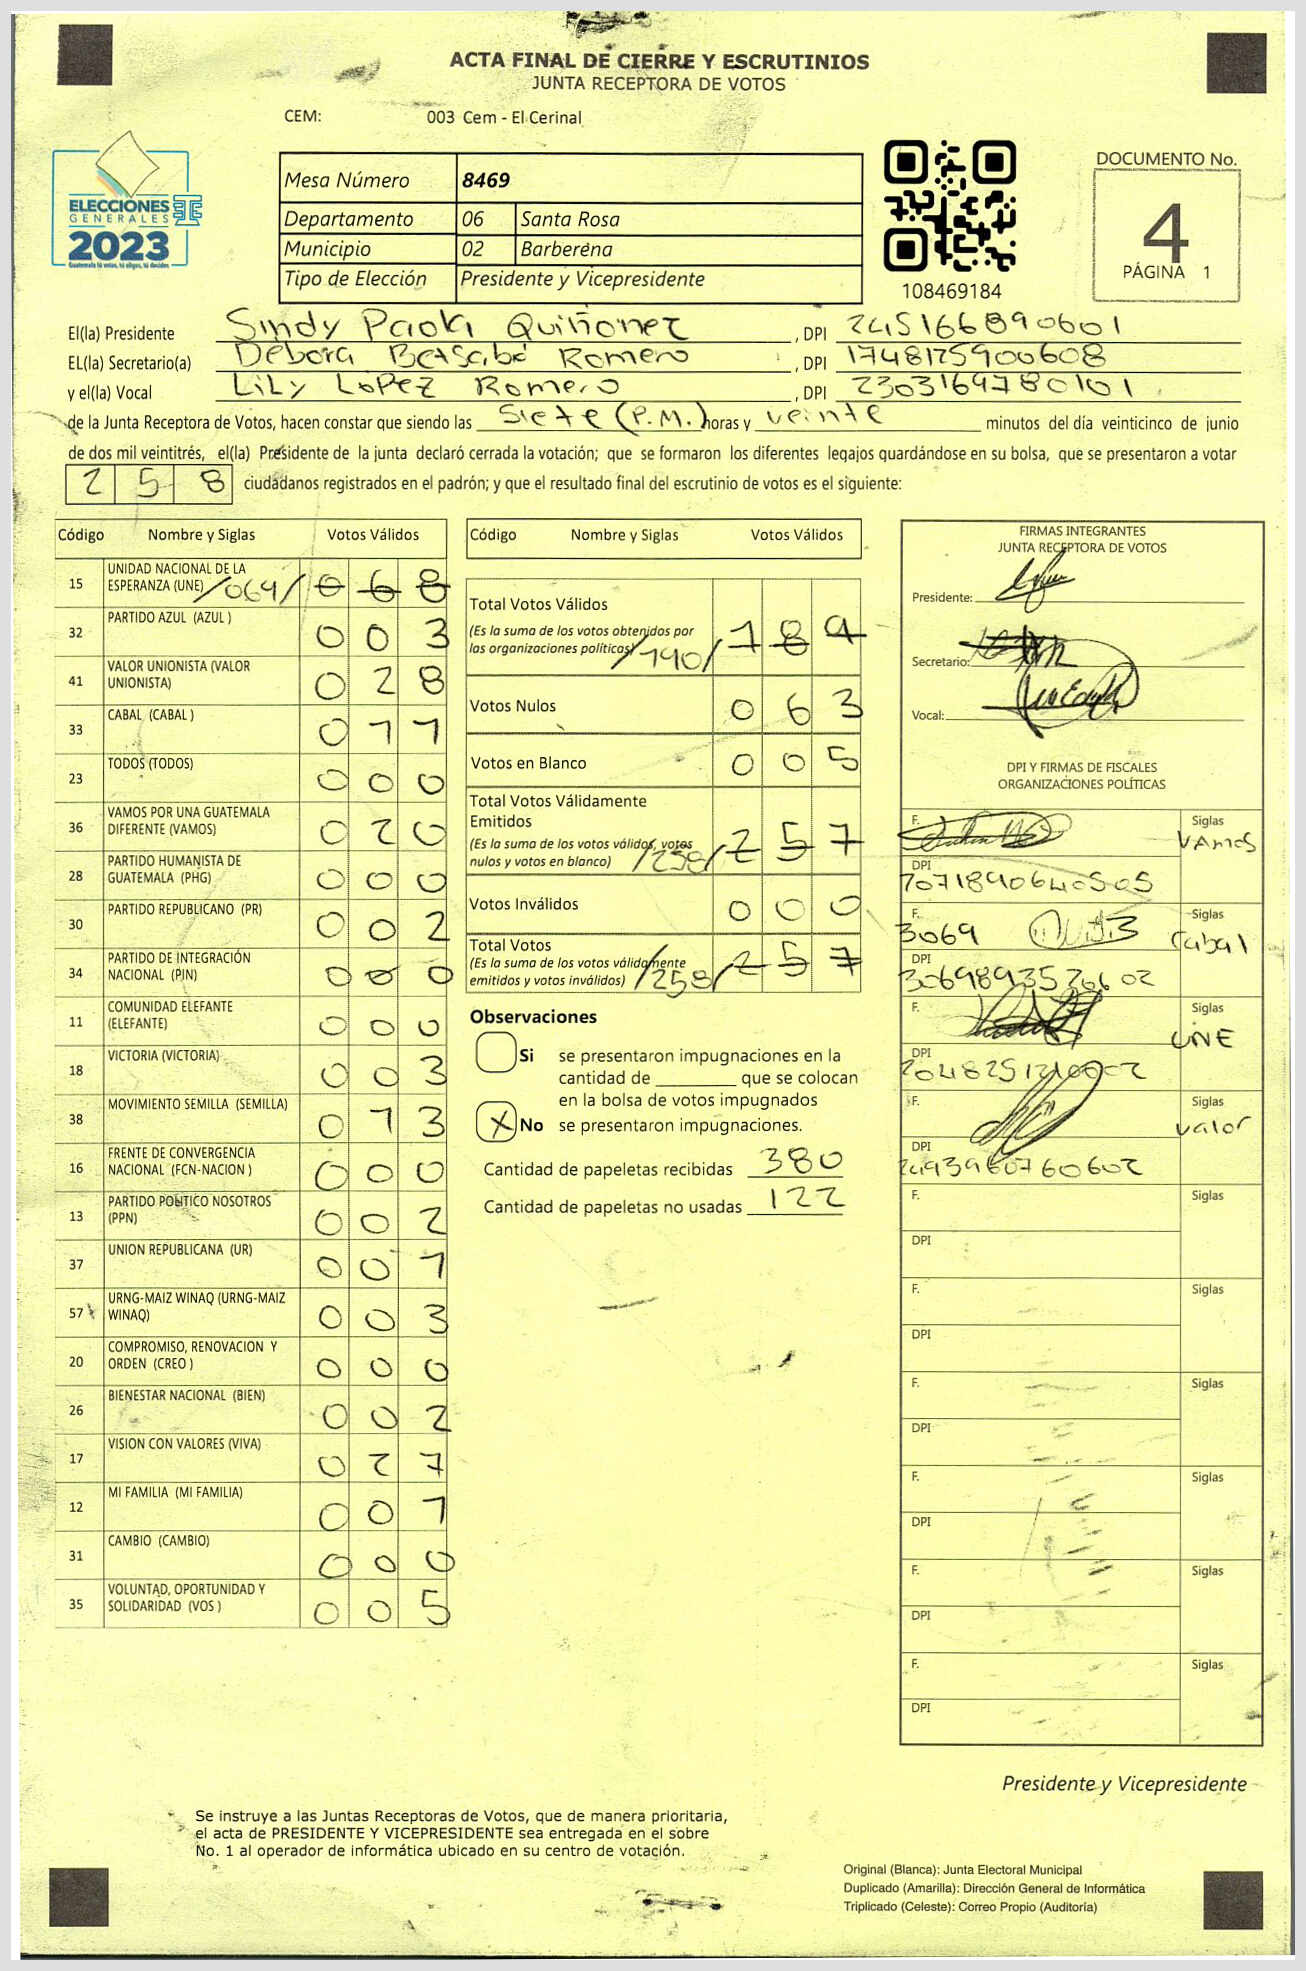 ACTA FINAL DE CIERRE Y ESCRUTINIOS
JUNTA RECEPTORA DE VOTOS
CEM: 003 Cem - El Cerinal
ELECCIONES
GENERALES
2023
Guatemala tú votas, tú eliges, tú decides
Mesa Número 8469
Departamento 06 Santa Rosa
Municipio 02 Barberena
Tipo de Elección Presidente y Vicepresidente
108469184
DOCUMENTO No.
4
PÁGINA 1
El(la) Presidente Sindy Paola Quiñonez, DPI 245166890601
EL(la) Secretario(a) Debora Betsabé Romero, DPI 1748125900608
y el(la) Vocal LiLy LóPEZ Romero, DPI 2303169780101
de la Junta Receptora de Votos, hacen constar que siendo las Siete (P.M.) horas y veinte minutos del día veinticinco de junio
de dos mil veintitrés, el(la) Presidente de la junta declaró cerrada la votación; que se formaron los diferentes legajos quardándose en su bolsa, que se presentaron a votar
258 ciudadanos registrados en el padrón; y que el resultado final del escrutinio de votos es el siguiente:
Código Nombre y Siglas Votos Válidos
15 UNIDAD NACIONAL DE LA ESPERANZA (UNE) /064/ 068
32 PARTIDO AZUL (AZUL ) 003
41 VALOR UNIONISTA (VALOR UNIONISTA) 028
33 CABAL (CABAL ) 011
23 TODOS (TODOS) 000
36 VAMOS POR UNA GUATEMALA DIFERENTE (VAMOS) 020
28 PARTIDO HUMANISTA DE GUATEMALA (PHG) 000
30 PARTIDO REPUBLICANO (PR) 002
34 PARTIDO DE INTEGRACIÓN NACIONAL (PIN) 000
11 COMUNIDAD ELEFANTE (ELEFANTE) 000
18 VICTORIA (VICTORIA) 003
38 MOVIMIENTO SEMILLA (SEMILLA) 013
16 FRENTE DE CONVERGENCIA NACIONAL (FCN-NACION ) 000
13 PARTIDO POLITICO NOSOTROS (PPN) 002
37 UNION REPUBLICANA (UR) 001
57 URNG-MAIZ WINAQ (URNG-MAIZ WINAQ) 003
20 COMPROMISO, RENOVACION Y ORDEN (CREO ) 000
26 BIENESTAR NACIONAL (BIEN) 002
17 VISION CON VALORES (VIVA) 027
12 MI FAMILIA (MI FAMILIA) 007
31 CAMBIO (CAMBIO) 000
35 VOLUNTAD, OPORTUNIDAD Y SOLIDARIDAD (VOS ) 005
Código Nombre y Siglas Votos Válidos
Total Votos Válidos
(Es la suma de los votos obtenidos por
las organizaciones políticas) /190/ 189
Votos Nulos 063
Votos en Blanco 005
Total Votos Válidamente
Emitidos
(Es la suma de los votos válidos, votos
nulos y votos en blanco) /258/ 257
Votos Inválidos 000
Total Votos
(Es la suma de los votos válidamente
emitidos y votos inválidos) /258/ 257
Observaciones
Si se presentaron impugnaciones en la
cantidad de ________ que se colocan
en la bolsa de votos impugnados
X No se presentaron impugnaciones.
Cantidad de papeletas recibidas 380
Cantidad de papeletas no usadas 122
FIRMAS INTEGRANTES
JUNTA RECEPTORA DE VOTOS
Presidente:
Secretario:
Vocal:
DPI Y FIRMAS DE FISCALES
ORGANIZACIONES POLÍTICAS
F. Siglas
VAmos
DPI
F. Siglas
3069 Cabal
DPI
F. Siglas
UNE
DPI
F. Siglas
valor
DPI
F. Siglas
DPI
F. Siglas
DPI
F. Siglas
DPI
F. Siglas
DPI
F. Siglas
DPI
F. Siglas
DPI
Presidente y Vicepresidente
Se instruye a las Juntas Receptoras de Votos, que de manera prioritaria,
el acta de PRESIDENTE Y VICEPRESIDENTE sea entregada en el sobre
No. 1 al operador de informática ubicado en su centro de votación.
Original (Blanca): Junta Electoral Municipal
Duplicado (Amarilla): Dirección General de Informática
Triplicado (Celeste): Correo Propio (Auditoría)